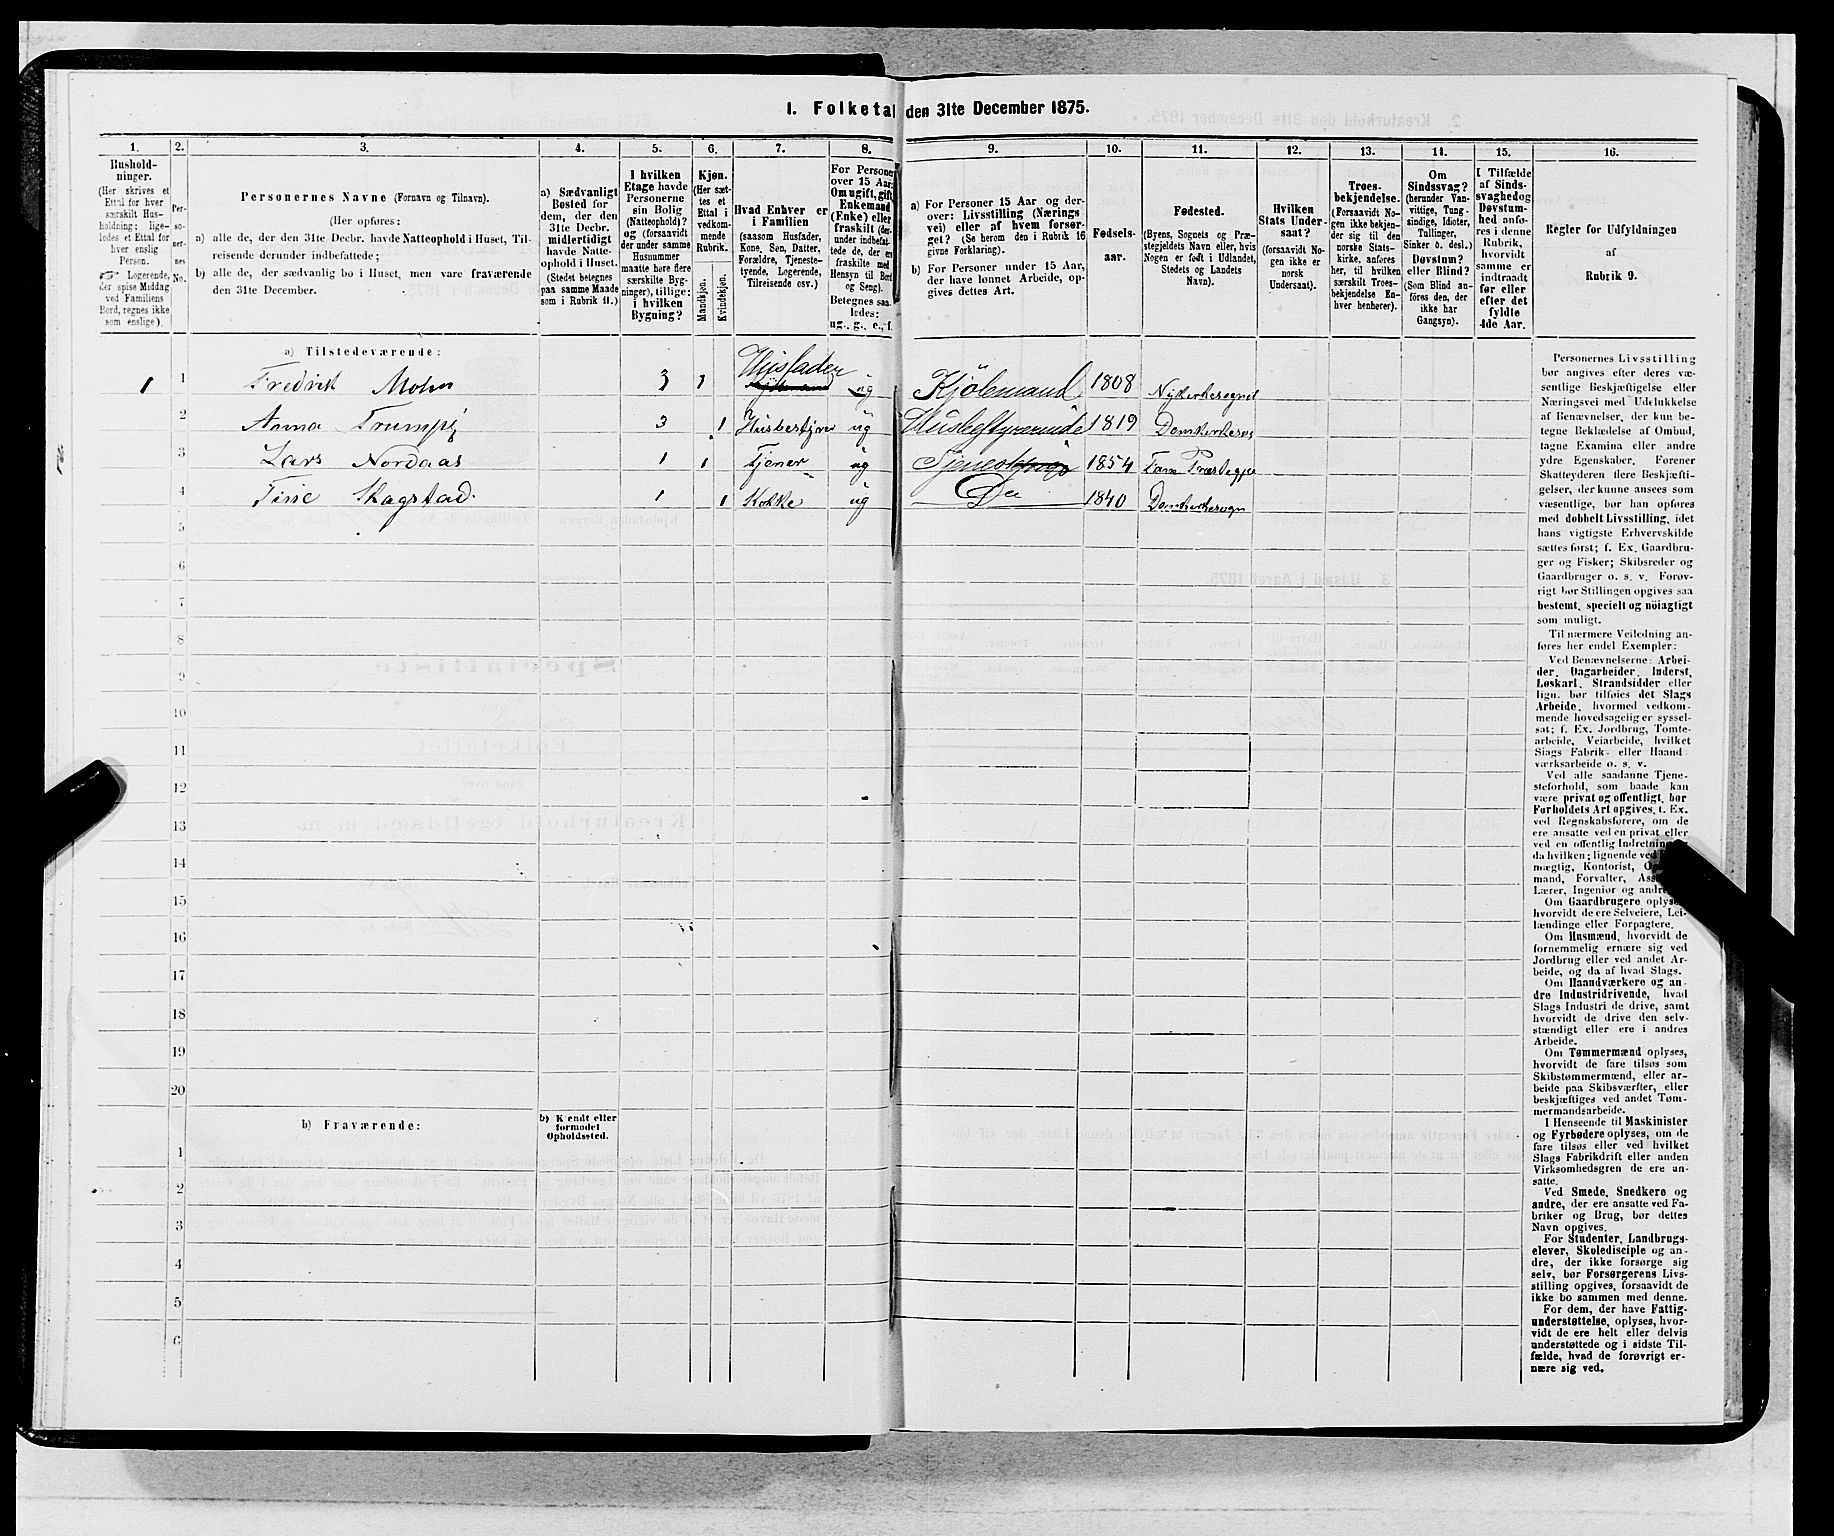 1. Folketal den 31te December 1875.
1. 2. 3. 4. 5. 6. 7. 8. 9. 10. 11. 12. 13. 14. 15. 16.
Hushold-
ninger.
(Her skrives et
Ettal for hver
særskilt Hus-
holdning; lige-
ledes et Ettal for
hver enslig
Person.
☞ Logerende,
der spise Middag
ved Familiens
Bord, regnes ikke
som enslige).
Per-
so-
ner-
nes
No.
Personernes Navne (Fornavn og Tilnavn).
(Her opføres:
a) alle de, der den 31te Decbr. havde Natteophold i Huset, Til-
reisende derunder indbefattede;
b) alle de, der sædvanlig bo i Huset, men vare fraværende
den 31te December.
a) Sædvanligt
Bosted for
dem, der den
31te Decbr.
midlertidigt
havde Natte-
ophold i Huset.
(Stedet betegnes
paa samme Maade
som i Rubrik 11.)
I hvilken
Etage havde
Personerne
sin Bolig
(Natteophold)?
og (forsaavidt
der under samme
Husnummer
maatte høre flere
særskilte Byg-
ninger), tillige:
i hvilken
Bygning?
Kjøn.
(Her sæt-
tes et
Ettal i
vedkom-
mende
Rubrik.
Mandkjøn.
Kvindekjøn.
Hvad Enhver er
i Familien
(saasom Husfader,
Kone, Søn, Datter,
Forældre, Tjeneste-
tyende, Logerende,
Tilreisende osv.)
For Personer
over 15 Aar:
Om ugift, gift,
Enkemand
(Enke) eller
fraskilt (der-
under indbefat-
tede de, der ere
fraskilte med
Hensyn til Bord
og Seng).
Betegnes saa-
ledes:
ug., g., e., f.
a) For Personer 15 Aar og der-
over: Livsstilling (Nærings-
vei) eller af hvem forsør-
get? (Se herom den i Rubrik 16
givne Forklaring).
b) For Personer under 15 Aar,
der have lønnet Arbeide, op-
gives dettes Art.
Fødsels-
aar.
Fødested.
(Byens, Sognets og Præ-
stegjeldets Navn eller, hvis
Nogen er født i Udlandet,
Stedets og Landets
Navn).
Hvilken
Stats Under-
saat?
(forsaavidt No-
gen ikke er
norsk
Undersaat).
Troes-
bekjendelse.
(Forsaavidt No-
gen ikke bekjen-
der sig til den
norske Stats-
kirke, anføres
her, til hvilken
særskilt Troes-
bekjendelse En-
hver henhører).
Om
Sindssvag?
(herunder Van-
vittige, Tung-
sindige, Idioter,
Tullinger,
Sinker o. desl.)
Døvstum?
eller Blind?
(Som Blind an-
føres den, der
ikke har
Gangsyn).
I Tilfælde
af Sinds-
svaghedog
Døvstum-
hed anfø-
res i denne
Rubrik,
hvorvidt
samme er
indtraadt
før eller
efter det
fyldte
4de Aar.
Regler for Udfyldningen
af
Rubrik 9.
a) Tilstedeværende:
1 1 Fredrik Mohn 3 1 Husfader ug Kjøbmand 1808 Nykirkesognet
2 Anna Trumpy 3 1 Husbestyrer ug Husbestyrerinde 1819 Domkirkesog
3 Lars Nordaas 1 1 Tjener ug 1854 Præstegje
4 Tine Skagstad. 1 1 Kokke ug Do 1840 Domkirkesogn
5
6
7
8
9
10
11
12
13
14
15
16
17
18
19
20
b) Fraværende:
b) Kjendt eller
formodet
Opholdssted.
1
2
3
4
5
6
Personernes Livsstilling
bør angives efter deres væ-
sentlige Beskjæftigelse eller
Næringsvei med Udelukkelse
af Benævnelser, der kun be-
tegne Beklædelse af Ombud,
tagne Examina eller andre
ydre Egenskaber. Forener
Skatteyderen flere Beskjæfti-
gelser, der kunne ansees som
væsentlige, bør han opføres
med dobbelt Livsstilling, idet
hans vigtigste Erhvervskilde
sættes først; f. Ex. Gaardbru-
ger og Fisker; Skibsreder og
Gaardbruger o. s. v. Forøv-
rigt bør Stillingen opgives saa
bestemt, specielt og nöiagtigt
som muligt.
Til nærmere Veiledning an-
føres her endel Exempler:
Ved Benævnelserne: Arbei-
der, Dagarbeider, Inderst,
Løskarl, Strandsidder eller
lign. bør tilføies det Slags
Arbeide, hvormed vedkom-
mende hovedsagelig er syssel-
sat; f. Ex. Jordbrug, Tomte-
arbeide, Veiarbeide, hvilket
Slags Fabrik- eller Haand-
værksarbeide o. s. v.
Ved alle saadanne Tjene-
steforhold, som baade kan
være privat og offentligt, bør
Forholdets Art opgives, t. Ex.
ved Regnskabsførere, om de
ere ansatte ved en privat eller
ved en offentlig Indretning
da hvilken; lignende ved
mægtig, Kontorist,
mand, Forvalter,
Lærer, Ingeniør og andre
Om Gaardbrugere oplyses
hvorvidt de ere Selveiere, Lei-
lændinge eller Forpagtere.
Om Husmænd, hvorvidt de
fornemmelig ernære sig ved
Jordbrug eller ved andet Ar-
beide, og da af hvad Slags.
Om Haandværkere og an-
dre Industridrivende, hvad
Slags Industri de drive, samt
hvorvidt de drive den selv-
stændigt eller ere i andres
Arbeide.
Om Tømmermænd oplyses,
hvorvidt de fare tilsøs som
Skibstømmermænd, eller ar-
beide paa Skibsværfter, eller
beskjæftiges ved andet Tøm-
mermandsarbeide.
I Henseende til Maskinister
og Fyrbødere oplyses, om de
fare tilsøs eller ved hvilket
Slags Fabrikdrift eller anden
Virksomhedsgren de ere an-
satte.
Ved Smede, Snedkere og
andre, der ere ansatte ved Fa-
briker og Brug, bør dettes
Navn opgives.
For Studenter, Landbrugs-
elever, Skoledisciple og an-
dre, der ikke forsørge sig
selv, bør Forsørgerens Livs-
stilling opgives, forsaavidt de
ikke bo sammen med denne.
For dem, der have Fattig-
understøttelse, oplyses, hvor-
vidt de ere helt eller delvis
understøttede og i sidste Til-
fælde, hvad de forøvrigt er-
nære sig ved.